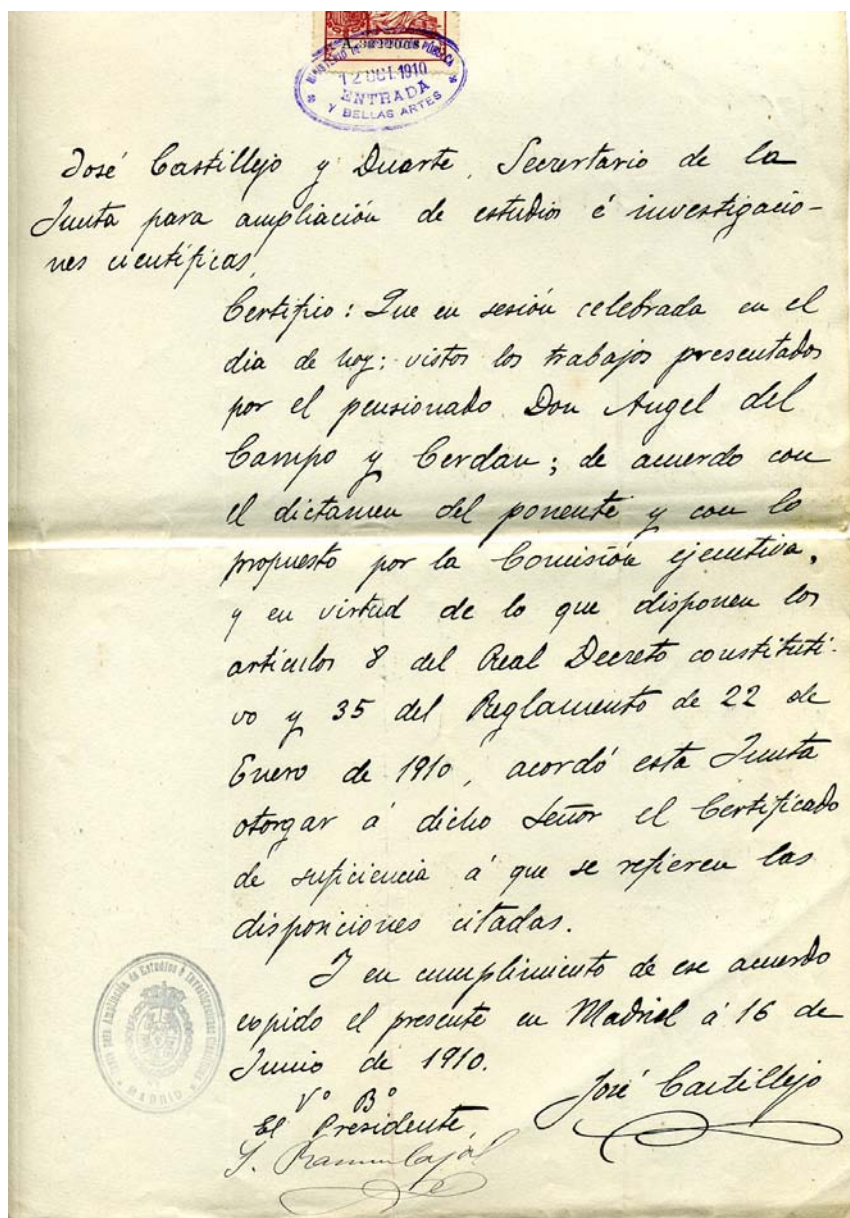 MINISTERIO DE INSTRUCCIÓN PÚBLICA
12 OCT 1910
ENTRADA
Y BELLAS ARTES
José Castillejo y Duarte, Secretario de la
Junta para ampliación de estudios é investigacio-
nes científicas,
Certifico: Que en sesión celebrada en el
dia de hoy; vistos los trabajos presentados
por el pensionado Don Angel del
Campo y Cerdan; de acuerdo con
el dictamen del ponente y con lo
propuesto por la Comisión ejecutiva,
y en virtud de lo que disponen los
artículos 8 del Real Decreto constituti-
vo y 35 del Reglamento de 22 de
Enero de 1910, acordó esta Junta
otorgar á dicho Señor el Certificado
de suficiencia á que se refieren las
disposiciones citadas.
Y en cumplimiento de ese acuerdo
expido el presente en Madrid á 16 de
Junio de 1910.
José Castillejo
Vº Bº
El Presidente,
S. Ramon Cajal
Junta para Ampliación de Estudios é Investigaciones Científicas
MADRID